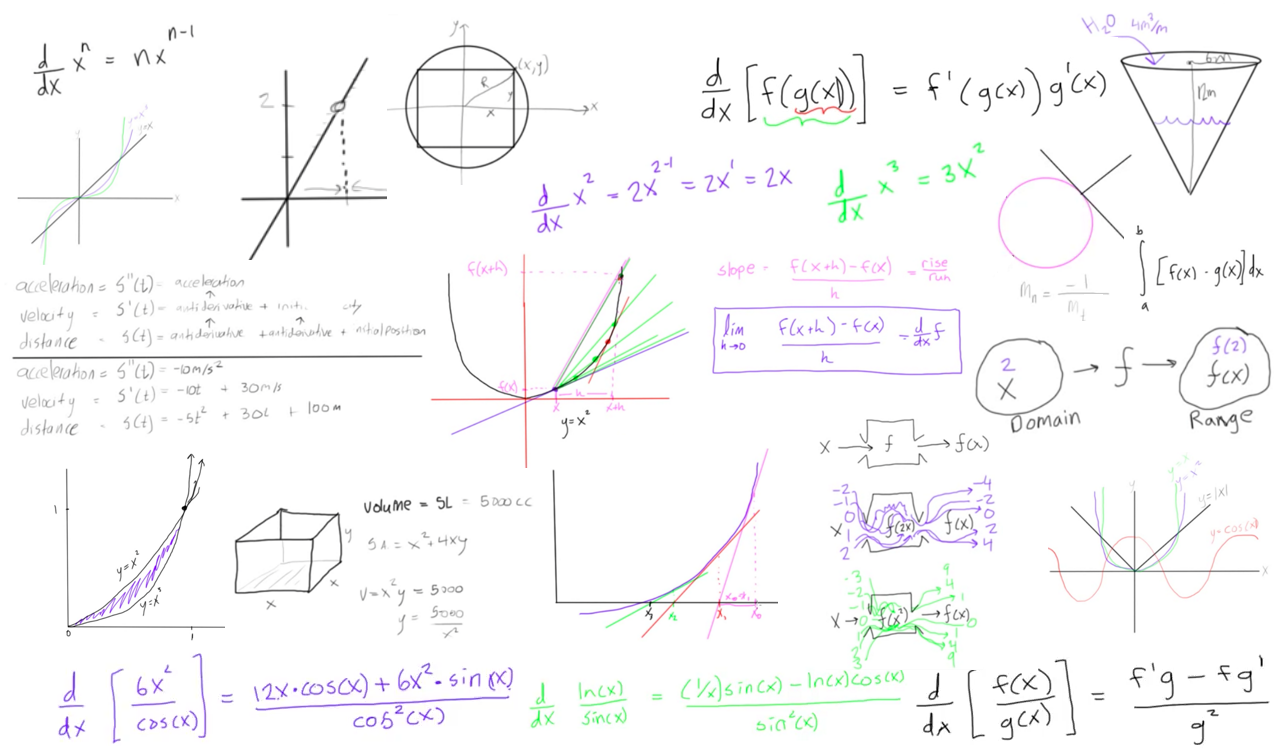 d/dx xⁿ = nxⁿ⁻¹
y=x
x
2
y
(x,y)
R
y
x
x
d/dx [f(g(x))] = f'(g(x)) g'(x)
H₂O 4m³/m
6m
12m
d/dx x² = 2x²⁻¹ = 2x¹ = 2x
d/dx x³ = 3x²
acceleration = S''(t) = acceleration
velocity = S'(t) = antiderivative +
distance = S(t) = antiderivative + antiderivative + initial position
acceleration = S''(t) = -10m/s²
velocity = S'(t) = -10t + 30m/s
distance = S(t) = -5t² + 30t + 100m
f(x+h)
f(x)
x
h
x+h
y=x²
slope = f(x+h)-f(x)/h = rise/run
lim h→0 f(x+h)-f(x)/h = d/dx f
mₙ = -1/mₜ
∫ₐᵇ [f(x) - g(x)]dx
2
x
→ f →
f(2)
f(x)
Domain
Range
x → f → f(x)
-2 -1 0 1 2
x f(2x) f(x)
-4 -2 0 2 4
-3 -2 -1 0 1 2 3
x → f(x²) → f(x)
9 4 1 0 1 4 9
1
y=x²
y=x³
0
1
y
x
x
volume = 5L = 5000cc
SA = x²+4xy
V=x²y = 5000
y = 5000/x²
x₃
x₂
x₁
x₀
y
y=x²
y=|x|
y=cos(x)
x
d/dx [6x²/cos(x)] = 12x·cos(x) + 6x²·sin(x)/cos²(x)
d/dx ln(x)/sin(x) = (1/x)sin(x) - ln(x)cos(x)/sin²(x)
d/dx [f(x)/g(x)] = f'g - fg'/g²